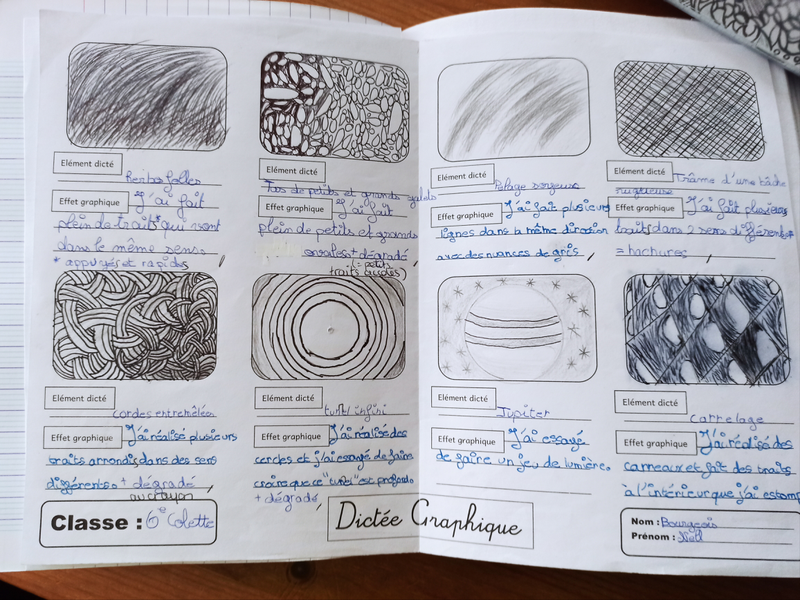 Elément dicté
Herbes folles
Effet graphique J'ai fait
plein de traits* qui vont
dans le même sens
* appuyés et rapides
Elément dicté
Tas de petits et grands galets
Effet graphique J'ai fait
plein de petits et grands
+ dégradé,
(= petits
traits
Elément dicté
Pelage soyeuse
Effet graphique J'ai fait plusieurs
lignes dans la même direction
avec des nuances de gris,
Elément dicté
Trâme d'une tâche
rugueuse
Effet graphique J'ai fait plusieurs
traits dans 2 sens différents
= hachures,
Elément dicté
cordes entremêlées
Effet graphique J'ai réalisé plusieurs
traits arrondis dans des sens
différents + dégradé,
au crayon
Elément dicté
tunel infini
Effet graphique J'ai réalisé des
cercles et j'ai essayé de faire
croire que ce "tunel" est profond
+ dégradé,
Elément dicté
Jupiter
Effet graphique J'ai essayé
de faire un jeu de lumière.
Elément dicté
Carrelage
Effet graphique J'ai réalisé des
carreaux et fait des traits
à l'intérieur que j'ai estomp
Classe : 6e Colette
Dictée Graphique
Nom : Bourgeois
Prénom :